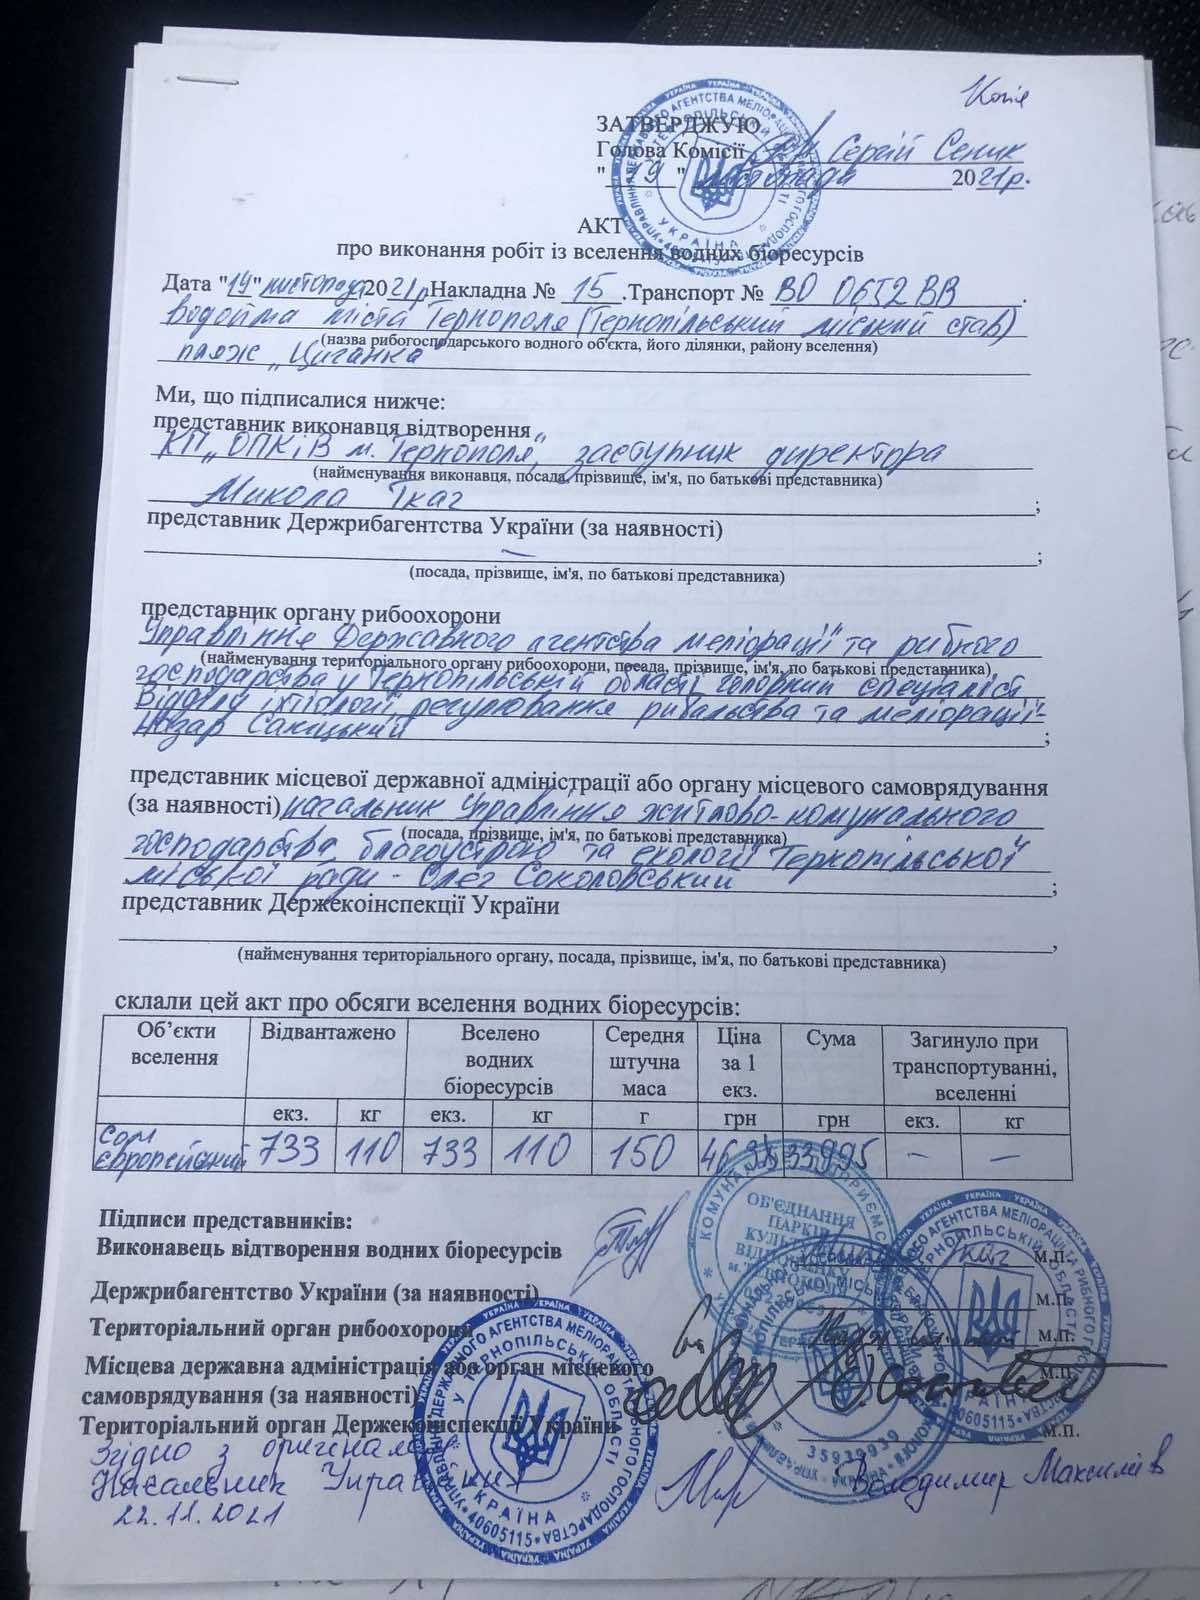 Копія
ЗАТВЕРДЖУЮ
Голова Комісії Сергій Сеник
"19" листопада 2021р.
АКТ
про виконання робіт із вселення водних біоресурсів
Дата "19" листопада 2021р. Накладна № 15 .Транспорт № ВО 0652 ВВ.
водойма міста Тернополя (Тернопільський міський став)
(назва рибогосподарського водного об'єкта, його ділянки, району вселення)
пляж „Циганка"
Ми, що підписалися нижче:
представник виконавця відтворення
КП „ОПКіВ м. Тернополя", заступник директора
(найменування виконавця, посада, прізвище, ім'я, по батькові представника)
Микола Ткач ;
представник Держрибагентства України (за наявності)
– ;
(посада, прізвище, ім'я, по батькові представника)
представник органу рибоохорони
Управління Державного агентства меліорації та рибного
(найменування територіального органу рибоохорони, посада, прізвище, ім'я, по батькові представника)
господарства у Тернопільській області, головний спеціаліст
відділу іхтіології, регулювання рибальства та меліорації-
Назар ;
представник місцевої державної адміністрації або органу місцевого самоврядування
(за наявності) начальник Управління житлово-комунального
(посада, прізвище, ім'я, по батькові представника)
господарства, благоустрою та екології Тернопільської
міської ради - Олег Соколовський ;
представник Держекоінспекції України
,
(найменування територіального органу, посада, прізвище, ім'я, по батькові представника)
склали цей акт про обсяги вселення водних біоресурсів:
Об’єкти вселення Відвантажено Вселено водних біоресурсів Середня штучна маса Ціна за 1 екз. Сума Загинуло при транспортуванні, вселенні
екз. кг екз. кг г грн грн екз. кг
Сом європейський 733 110 733 110 150 46.38 33995 – –
Підписи представників:
Виконавець відтворення водних біоресурсів Ткач м.п.
Держрибагентство України (за наявності) м.п.
Територіальний орган рибоохорони м.п.
Місцева державна адміністрація або орган місцевого м.п.
самоврядування (за наявності)
Територіальний орган Держекоінспекції України м.п.
Згідно з оригіналом
Начальник Управління Володимир Максимів
22.11.2021
ОБ'ЄДНАННЯ
ПАРКІВ
УКРАЇНА
40605115
35939939